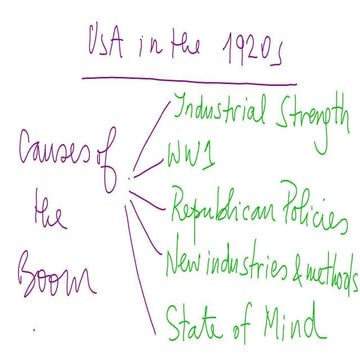 USA in the 1920s
Causes of
the
Boom
Industrial Strength
WW1
Republican Policies
New industries & methods
State of Mind